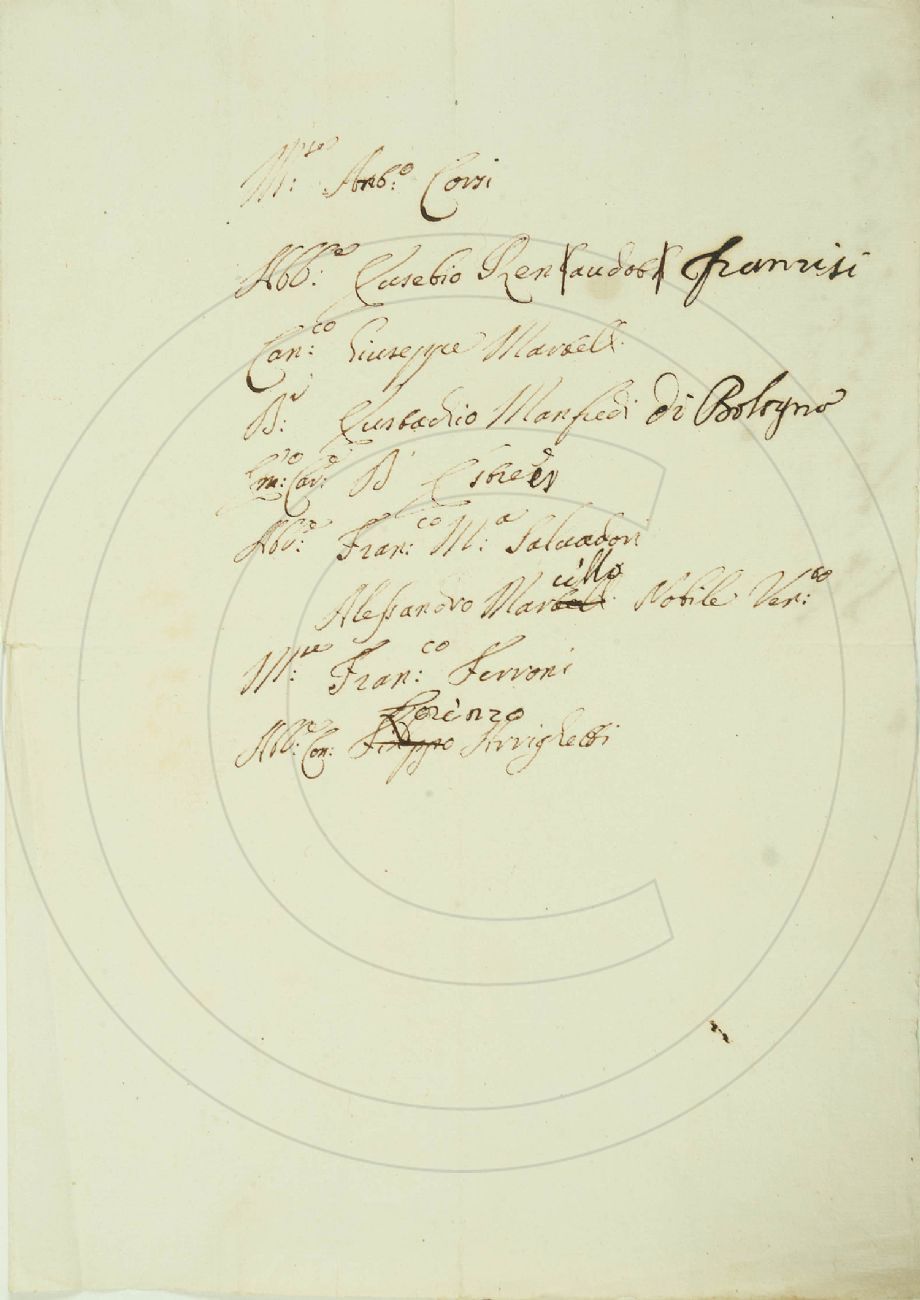 M:se Ant:o Corsi
Abb:e Eusebio Renaudot francisi
Can:co Giuseppe Martelli
D:r Eustachio Manfredi di Bologna
Em:o Car:e D' Estrées
Ab:e Fran:co M:a Salvadori
cello
Alessandro Martell Nobile Ven:to
M:se Fran:co Ferroni
Lorenzo
Abb:e Con: Filippo Arrighetti